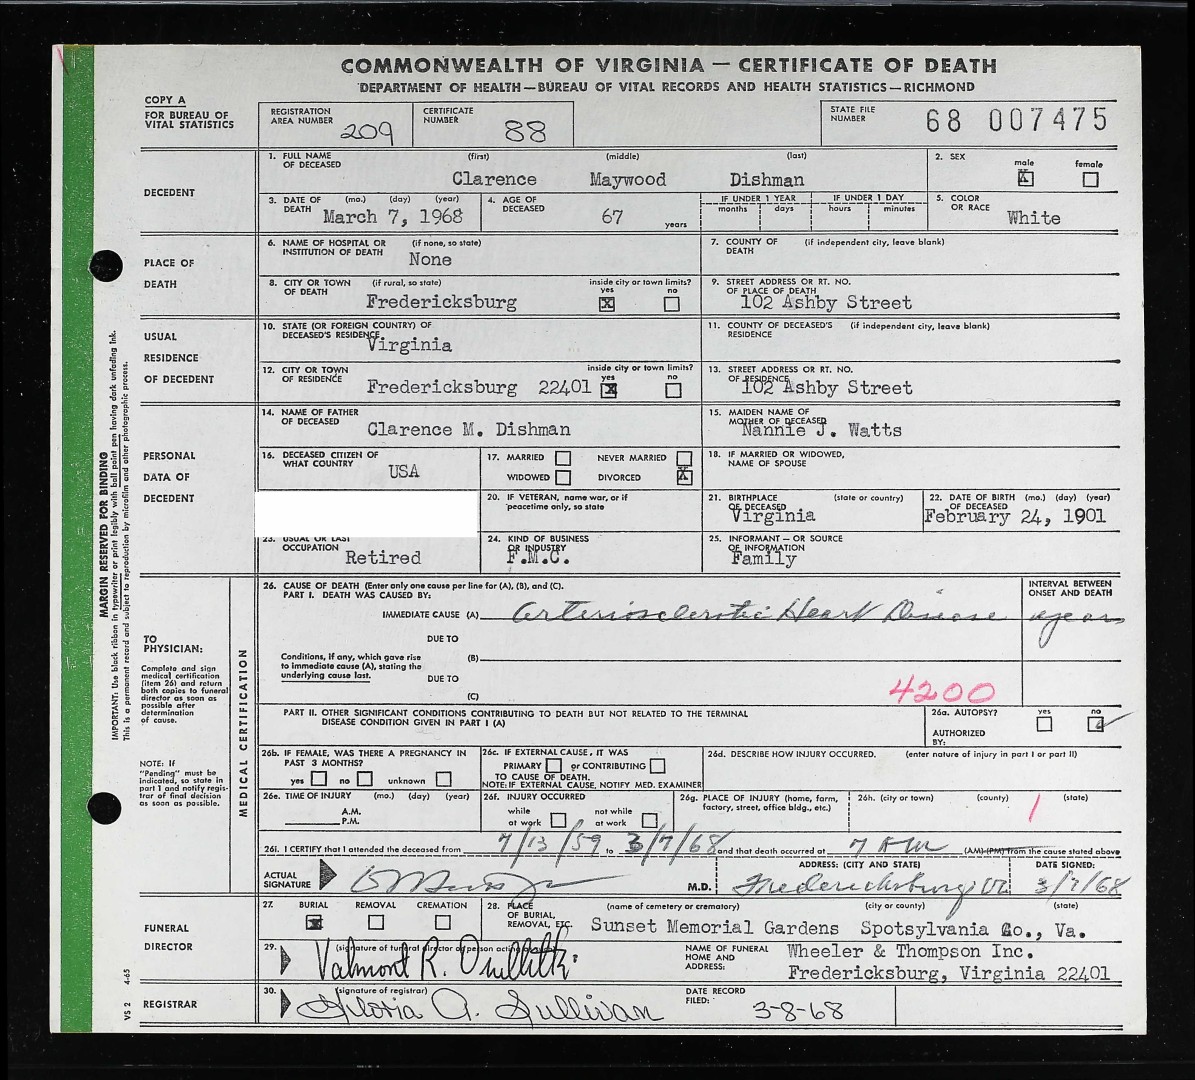 COMMONWEALTH OF VIRGINIA — CERTIFICATE OF DEATH
DEPARTMENT OF HEALTH—BUREAU OF VITAL RECORDS AND HEALTH STATISTICS—RICHMOND
COPY A
FOR BUREAU OF
VITAL STATISTICS
REGISTRATION
AREA NUMBER 209
CERTIFICATE
NUMBER 88
STATE FILE
NUMBER 68 007475
DECEDENT
1. FULL NAME (first) (middle) (last)
OF DECEASED
Clarence Maywood Dishman
2. SEX male female
X
3. DATE OF (mo.) (day) (year)
DEATH March 7, 1968
4. AGE OF
DECEASED 67 years
IF UNDER 1 YEAR IF UNDER 1 DAY
months days hours minutes
5. COLOR
OR RACE White
PLACE OF
DEATH
6. NAME OF HOSPITAL OR (if none, so state)
INSTITUTION OF DEATH
None
7. COUNTY OF (if independent city, leave blank)
DEATH
8. CITY OR TOWN (if rural, so state) inside city or town limits?
OF DEATH yes no
Fredericksburg X
9. STREET ADDRESS OR RT. NO.
OF PLACE OF DEATH
102 Ashby Street
USUAL
RESIDENCE
OF DECEDENT
10. STATE (OR FOREIGN COUNTRY) OF
DECEASED'S RESIDENCE
Virginia
11. COUNTY OF DECEASED'S (if independent city, leave blank)
RESIDENCE
12. CITY OR TOWN inside city or town limits?
OF RESIDENCE yes no
Fredericksburg 22401 X
13. STREET ADDRESS OR RT. NO.
OF RESIDENCE
102 Ashby Street
PERSONAL
DATA OF
DECEDENT
14. NAME OF FATHER
OF DECEASED Clarence M. Dishman
15. MAIDEN NAME OF
MOTHER OF DECEASED
Nannie J. Watts
16. DECEASED CITIZEN OF
WHAT COUNTRY USA
17. MARRIED NEVER MARRIED
WIDOWED DIVORCED X
18. IF MARRIED OR WIDOWED,
NAME OF SPOUSE
20. IF VETERAN, name war, or if
peacetime only, so state
21. BIRTHPLACE (state or country)
OF DECEASED
Virginia
22. DATE OF BIRTH (mo.) (day) (year)
OF DECEASED
February 24, 1901
23. USUAL OR LAST
OCCUPATION Retired
24. KIND OF BUSINESS
OR INDUSTRY
F.M.C.
25. INFORMANT — OR SOURCE
OF INFORMATION
Family
MARGIN RESERVED FOR BINDING
IMPORTANT: Use black ribbon in typewriter or print legibly with ball point pen having dark unfading ink.
This is a permanent record and subject to reproduction by microfilm and other photographic process.
TO
PHYSICIAN:
Complete and sign
medical certification
(item 26) and return
both copies to funeral
director as soon as
possible after
determination
of cause.
NOTE: If
"Pending" must be
indicated, so state in
part I and notify regis-
trar of final decision
as soon as possible.
MEDICAL CERTIFICATION
26. CAUSE OF DEATH (Enter only one cause per line for (A), (B), and (C).
PART I. DEATH WAS CAUSED BY:
INTERVAL BETWEEN
ONSET AND DEATH
IMMEDIATE CAUSE (A) Arteriosclerotic Heart Disease years
DUE TO
Conditions, if any, which gave rise
to immediate cause (A), stating the
underlying cause last.
(B)
DUE TO
(C)
4200
PART II. OTHER SIGNIFICANT CONDITIONS CONTRIBUTING TO DEATH BUT NOT RELATED TO THE TERMINAL
DISEASE CONDITION GIVEN IN PART I (A)
26a. AUTOPSY? yes no
AUTHORIZED
BY:
26b. IF FEMALE, WAS THERE A PREGNANCY IN
PAST 3 MONTHS?
yes no unknown
26c. IF EXTERNAL CAUSE, IT WAS
PRIMARY or CONTRIBUTING
TO CAUSE OF DEATH.
NOTE: IF EXTERNAL CAUSE, NOTIFY MED. EXAMINER
26d. DESCRIBE HOW INJURY OCCURRED. (enter nature of injury in part I or part II)
26e. TIME OF INJURY (mo.) (day) (year)
A.M.
P.M.
26f. INJURY OCCURRED
while not while
at work at work
26g. PLACE OF INJURY (home, farm,
factory, street, office bldg., etc.)
26h. (city or town) (county) (state)
26i. I CERTIFY that I attended the deceased from 7/13/59 to 3/7/68 and that death occurred at 7 AM (AM) (PM) from the cause stated above
ACTUAL
SIGNATURE M.D.
ADDRESS: (CITY AND STATE)
Fredericksburg, Va.
DATE SIGNED:
3/7/68
FUNERAL
DIRECTOR
27. BURIAL REMOVAL CREMATION
X
28. PLACE (name of cemetery or crematory) (city or county) (state)
OF BURIAL,
REMOVAL, ETC.
Sunset Memorial Gardens Spotsylvania Co., Va.
29. (signature of funeral director or person acting as such)
Valmont R.
NAME OF FUNERAL
HOME AND
ADDRESS:
Wheeler & Thompson Inc.
Fredericksburg, Virginia 22401
REGISTRAR
30. (signature of registrar)
Gloria A. Sullivan
DATE RECORD
FILED: 3-8-68
VS 2 4-65